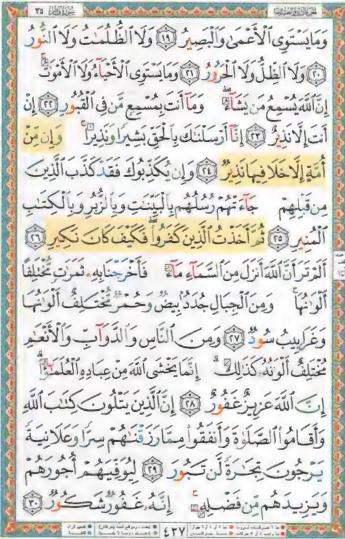 وَمَا يَسْتَوِى ٱلْأَعْمَىٰ وَٱلْبَصِيرُ ١٩ وَلَا ٱلظُّلُمَٰتُ وَلَا ٱلنُّورُ
٢٠ وَلَا ٱلظِّلُّ وَلَا ٱلْحَرُورُ ٢١ وَمَا يَسْتَوِى ٱلْأَحْيَآءُ وَلَا ٱلْأَمْوَٰتُ
إِنَّ ٱللَّهَ يُسْمِعُ مَن يَشَآءُ وَمَآ أَنتَ بِمُسْمِعٍ مَّن فِى ٱلْقُبُورِ ٢٢ إِنْ
أَنتَ إِلَّا نَذِيرٌ ٢٣ إِنَّآ أَرْسَلْنَٰكَ بِٱلْحَقِّ بَشِيرًا وَنَذِيرًا وَإِن مِّنْ
أُمَّةٍ إِلَّا خَلَا فِيهَا نَذِيرٌ ٢٤ وَإِن يُكَذِّبُوكَ فَقَدْ كَذَّبَ ٱلَّذِينَ
مِن قَبْلِهِمْ جَآءَتْهُمْ رُسُلُهُم بِٱلْبَيِّنَٰتِ وَبِٱلزُّبُرِ وَبِٱلْكِتَٰبِ
ٱلْمُنِيرِ ٢٥ ثُمَّ أَخَذْتُ ٱلَّذِينَ كَفَرُوا۟ فَكَيْفَ كَانَ نَكِيرِ ٢٦
أَلَمْ تَرَ أَنَّ ٱللَّهَ أَنزَلَ مِنَ ٱلسَّمَآءِ مَآءً فَأَخْرَجْنَا بِهِۦ ثَمَرَٰتٍ مُّخْتَلِفًا
أَلْوَٰنُهَا وَمِنَ ٱلْجِبَالِ جُدَدٌۢ بِيضٌ وَحُمْرٌ مُّخْتَلِفٌ أَلْوَٰنُهَا
وَغَرَابِيبُ سُودٌ ٢٧ وَمِنَ ٱلنَّاسِ وَٱلدَّوَآبِّ وَٱلْأَنْعَٰمِ
مُخْتَلِفٌ أَلْوَٰنُهُۥ كَذَٰلِكَ إِنَّمَا يَخْشَى ٱللَّهَ مِنْ عِبَادِهِ ٱلْعُلَمَٰٓؤُا۟
إِنَّ ٱللَّهَ عَزِيزٌ غَفُورٌ ٢٨ إِنَّ ٱلَّذِينَ يَتْلُونَ كِتَٰبَ ٱللَّهِ
وَأَقَامُوا۟ ٱلصَّلَوٰةَ وَأَنفَقُوا۟ مِمَّا رَزَقْنَٰهُمْ سِرًّا وَعَلَانِيَةً
يَرْجُونَ تِجَٰرَةً لَّن تَبُورَ ٢٩ لِيُوَفِّيَهُمْ أُجُورَهُمْ
وَيَزِيدَهُم مِّن فَضْلِهِۦٓ إِنَّهُۥ غَفُورٌ شَكُورٌ ٣٠
٤٣٧